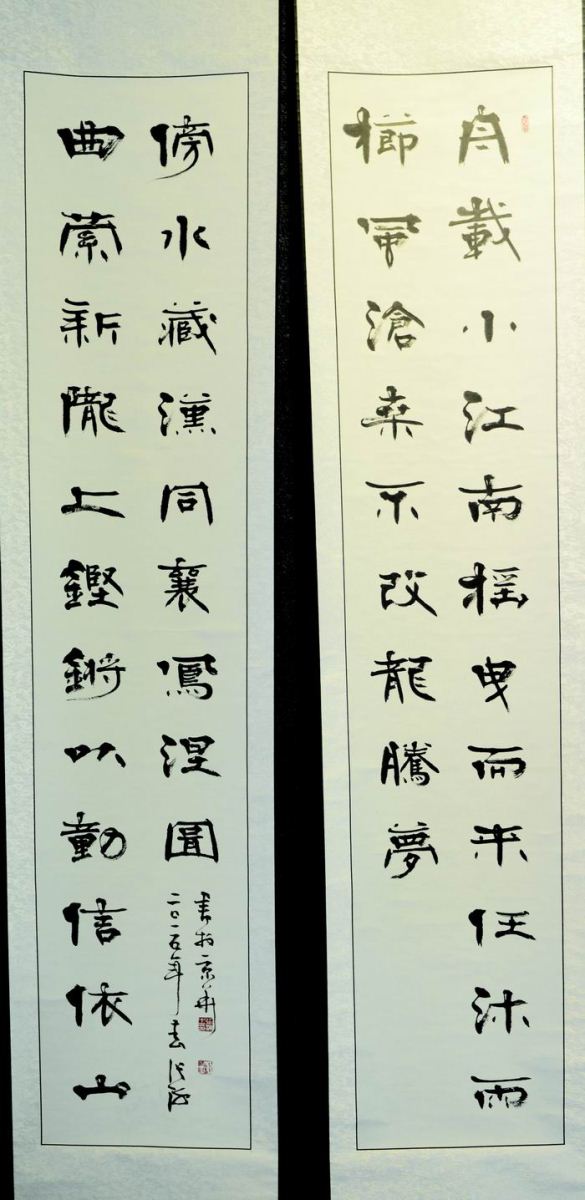 舟載小江南摇曳而来任沐雨
櫛風滄桒不改龍騰夢
曲縈新隴上鏗鏘以動信依山
傍水藏漢同襄鳳涅圖
二〇一五年春
書於京華